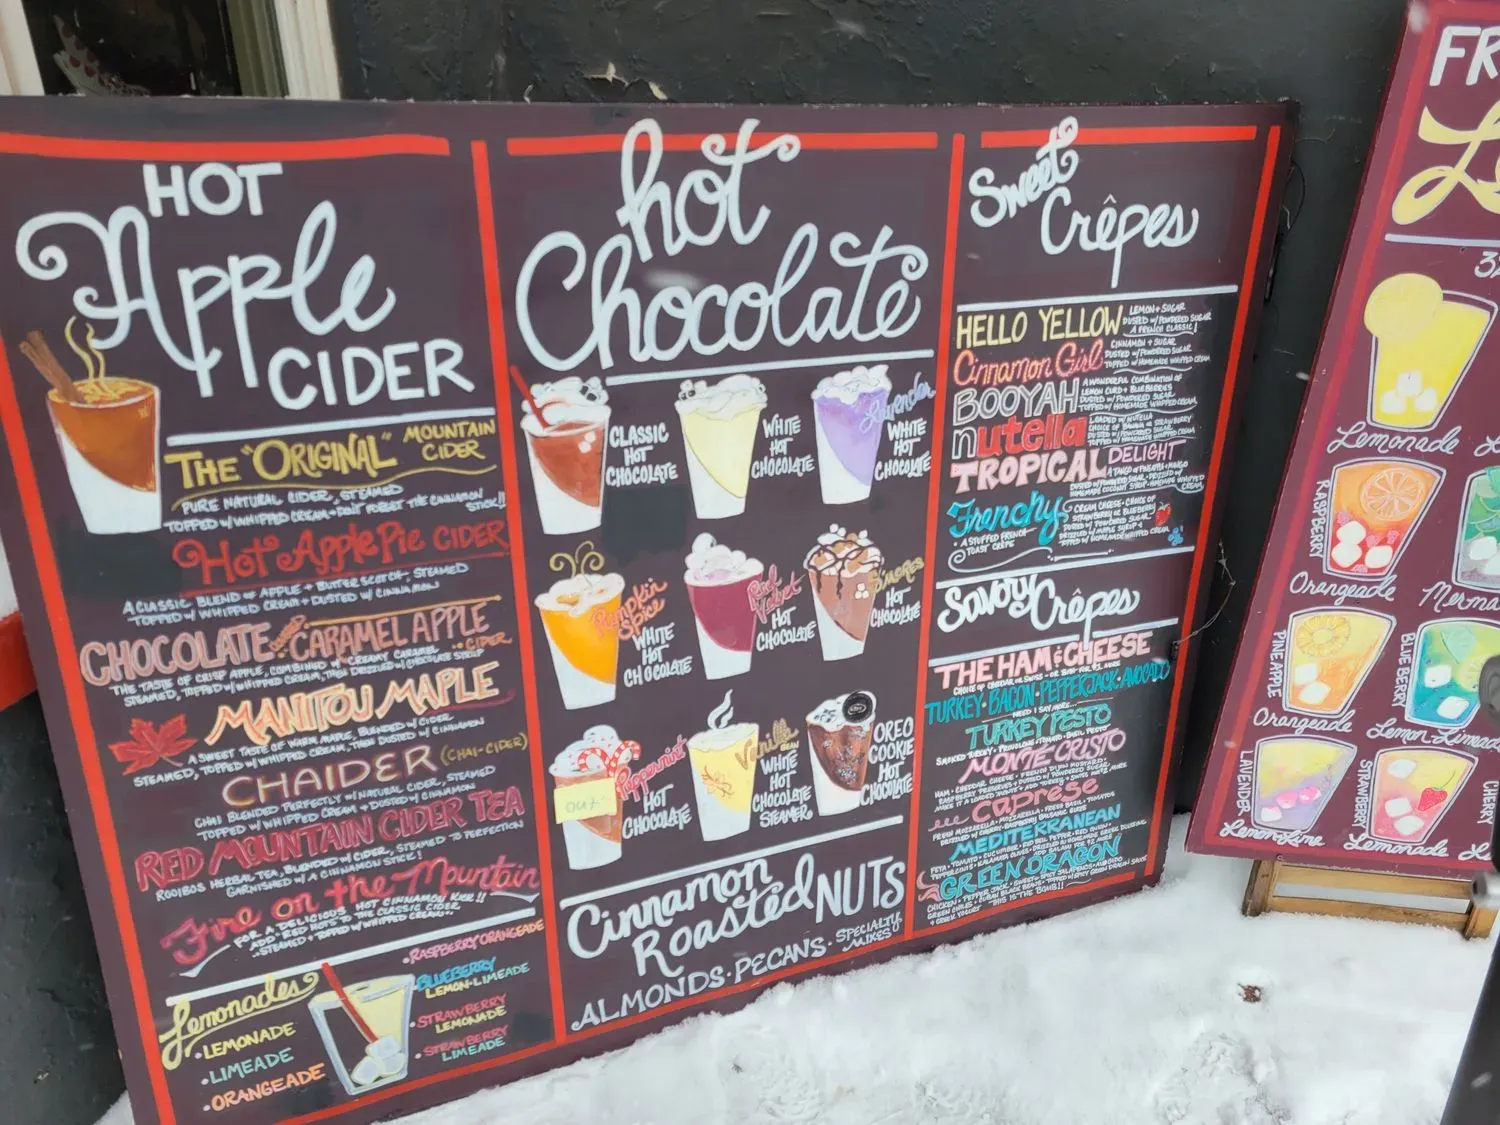 HOT
Apple
CIDER
THE "ORIGINAL" MOUNTAIN
CIDER
PURE NATURAL CIDER, STEAMED
TOPPED W/ WHIPPED CREAM + DON'T FORGET THE CINNAMON
STICK!!
Hot Apple Pie CIDER
A CLASSIC BLEND OF APPLE + BUTTERSCOTCH, STEAMED
TOPPED W/ WHIPPED CREAM + DUSTED W/ CINNAMON
CHOCOLATE CARAMEL APPLE
CIDER
THE TASTE OF CRISP APPLE, COMBINED W/ CREAMY CARAMEL
STEAMED, TOPPED W/ WHIPPED CREAM, THEN DRIZZLED W/ CHOCOLATE SYRUP
MANITOU MAPLE
A SWEET TASTE OF WARM MAPLE, BLENDED W/ CIDER
STEAMED, TOPPED W/ WHIPPED CREAM, THEN DUSTED W/ CINNAMON
CHAIDER (CHAI-CIDER)
CHAI BLENDED PERFECTLY W/ NATURAL CIDER, STEAMED
TOPPED W/ WHIPPED CREAM + DUSTED W/ CINNAMON
RED MOUNTAIN CIDER TEA
ROOIBOS HERBAL TEA, BLENDED W/ CIDER, STEAMED TO PERFECTION
GARNISHED W/ A CINNAMON STICK!
Fire on the Mountain
FOR A DELICIOUS HOT CINNAMON KICK!!
ADD RED HOTS TO THE CLASSIC CIDER
STEAMED + TOPPED W/ WHIPPED CREAM
Lemonades
• LEMONADE
• LIMEADE
• ORANGEADE
• RASPBERRY ORANGEADE
• BLUEBERRY
LEMON-LIMEADE
• STRAWBERRY
LEMONADE
• STRAWBERRY
LIMEADE
hot
Chocolate
CLASSIC
HOT
CHOCOLATE
WHITE
HOT
CHOCOLATE
Lavender
WHITE
HOT
CHOCOLATE
Pumpkin
Spice
WHITE
HOT
CHOCOLATE
Red
Velvet
HOT
CHOCOLATE
S'mores
HOT
CHOCOLATE
Peppermint
HOT
CHOCOLATE
OUT
Vanilla
BEAN
WHITE
HOT
CHOCOLATE
STEAMER
OREO
COOKIE
HOT
CHOCOLATE
Cinnamon
Roasted NUTS
ALMONDS • PECANS • SPECIALTY
MIXES
Sweet
Crêpes
HELLO YELLOW LEMON + SUGAR
DUSTED W/ POWDERED SUGAR
A FRENCH CLASSIC!
Cinnamon Girl CINNAMON + SUGAR
DUSTED W/ POWDERED SUGAR
TOPPED W/ HOMEMADE WHIPPED CREAM
BOOYAH A WONDERFUL COMBINATION OF
LEMON CURD + BLUEBERRIES
DUSTED W/ POWDERED SUGAR
TOPPED W/ HOMEMADE WHIPPED CREAM
nutella LOADED W/ NUTELLA
CHOICE OF BANANA OR STRAWBERRY
DUSTED W/ POWDERED SUGAR
TOPPED W/ HOMEMADE WHIPPED CREAM
TROPICAL DELIGHT
A TANGO OF PINEAPPLE + MANGO
Frenchy CREAM CHEESE + CHOICE OF
STRAWBERRY OR BLUEBERRY
DUSTED W/ POWDERED SUGAR
DRIZZLED W/ MAPLE SYRUP +
TOPPED W/ HOMEMADE WHIPPED CREAM
• A STUFFED FRENCH
TOAST CRÊPE
Savory Crêpes
THE HAM & CHEESE
TURKEY • BACON • PEPPERJACK • AVOCADO
NEED I SAY MORE...
TURKEY PESTO
SMOKED TURKEY • PROVOLONE • TOMATO • BASIL PESTO
MONTE CRISTO
Caprese
FRESH MOZZARELLA • FRESH BASIL • TOMATOES
MEDITERRANEAN
GREEN DRAGON
FR
Lemonade
RASPBERRY
Orangeade
PINEAPPLE
Orangeade
BLUEBERRY
Lemon-Limeade
LAVENDER
Lemon-Lime
STRAWBERRY
Lemonade
CHERRY